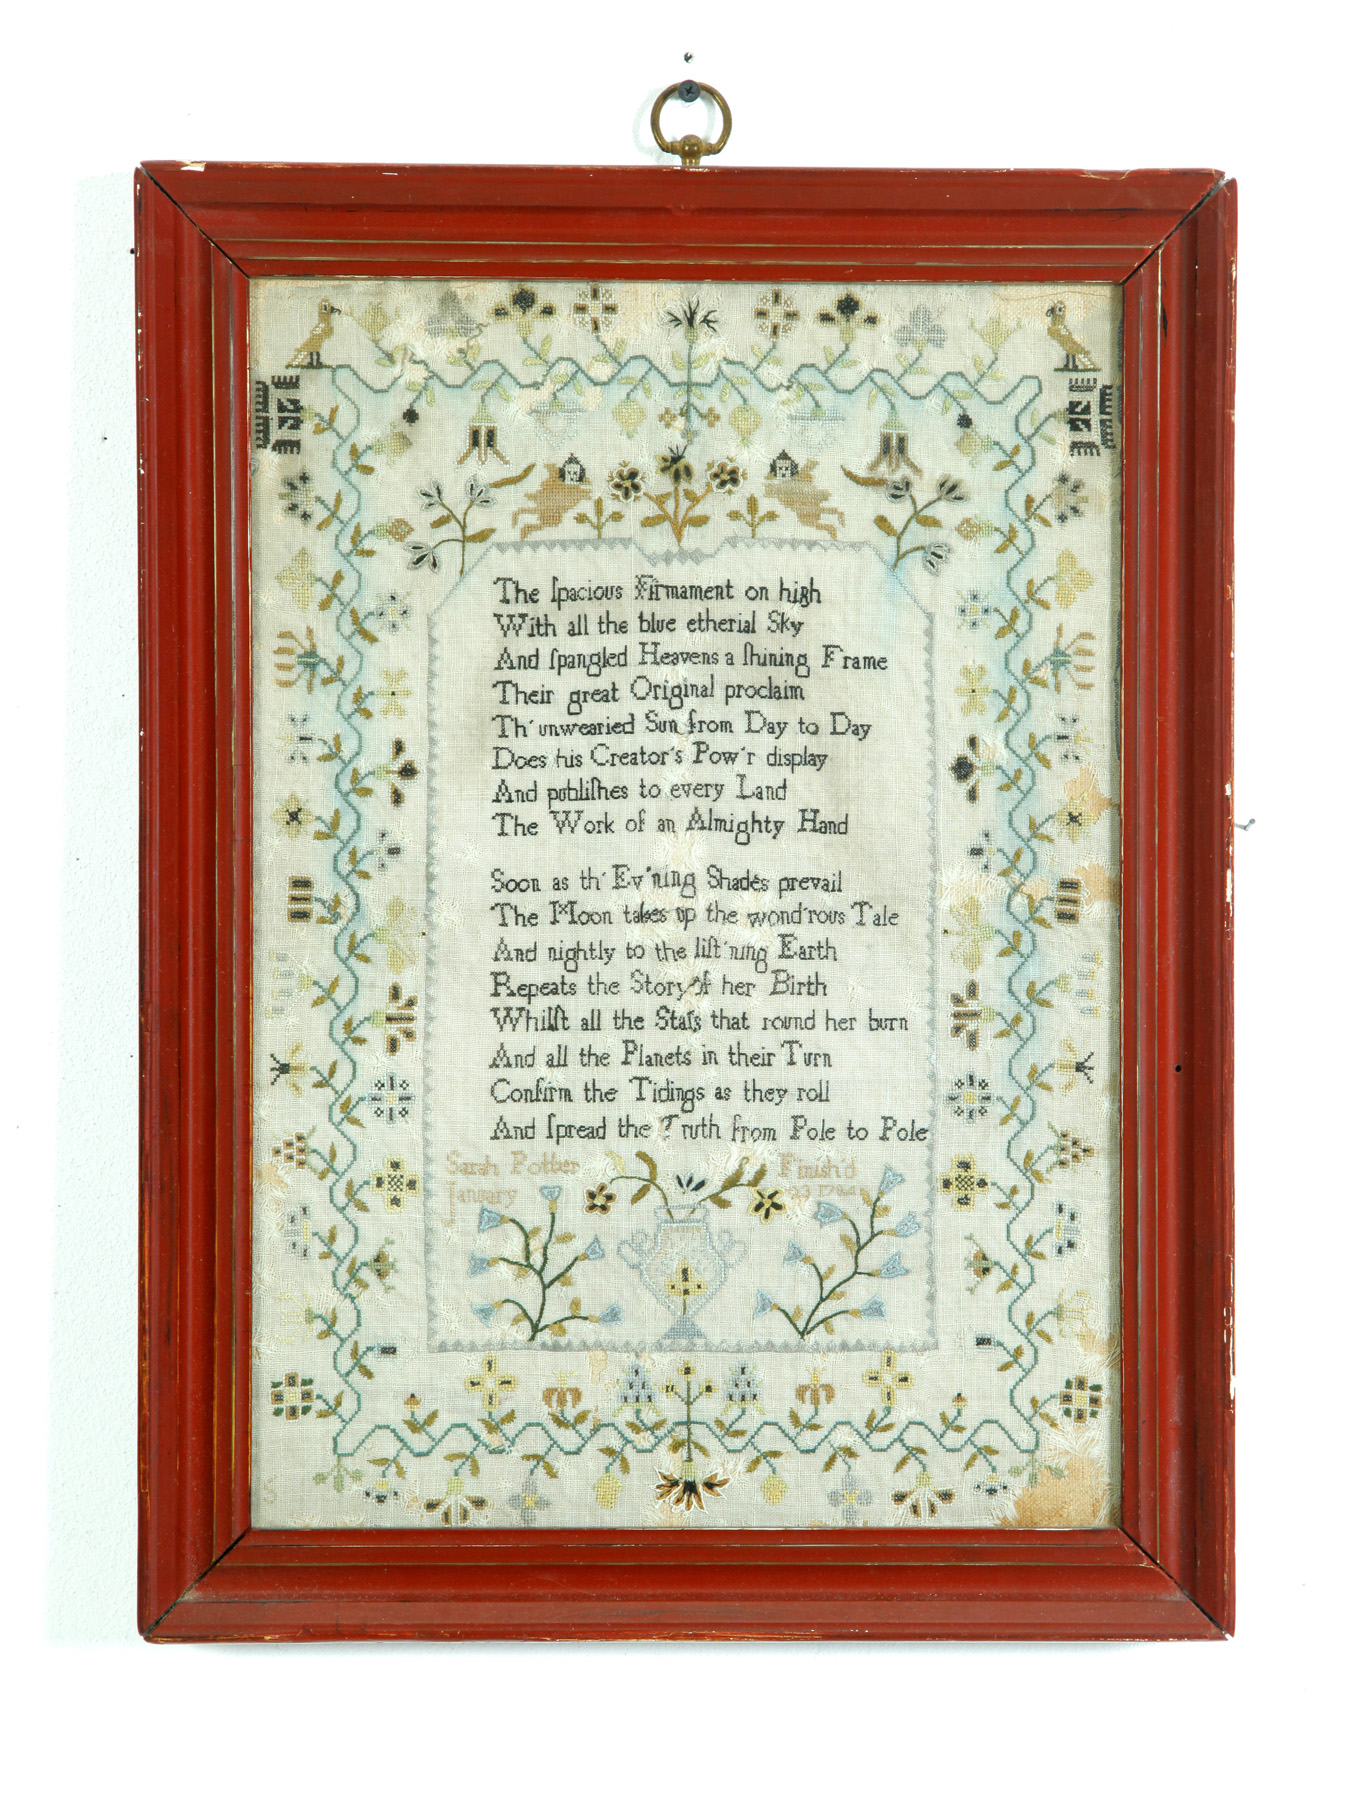 The ſpacious Firmament on high
With all the blue etherial Sky
And ſpangled Heavens a ſhining Frame
Their great Original proclaim
Th'unwearied Sun from Day to Day
Does his Creator's Pow'r display
And publiſhes to every Land
The Work of an Almighty Hand
Soon as th' Ev'ning Shades prevail
The Moon takes up the wond'rous Tale
And nightly to the liſt'ning Earth
Repeats the Story of her Birth
Whilſt all the Stars that round her burn
And all the Planets in their Turn
Confirm the Tidings as they roll
And ſpread the Truth from Pole to Pole
Sarah Potter Finish'd
January 23
S